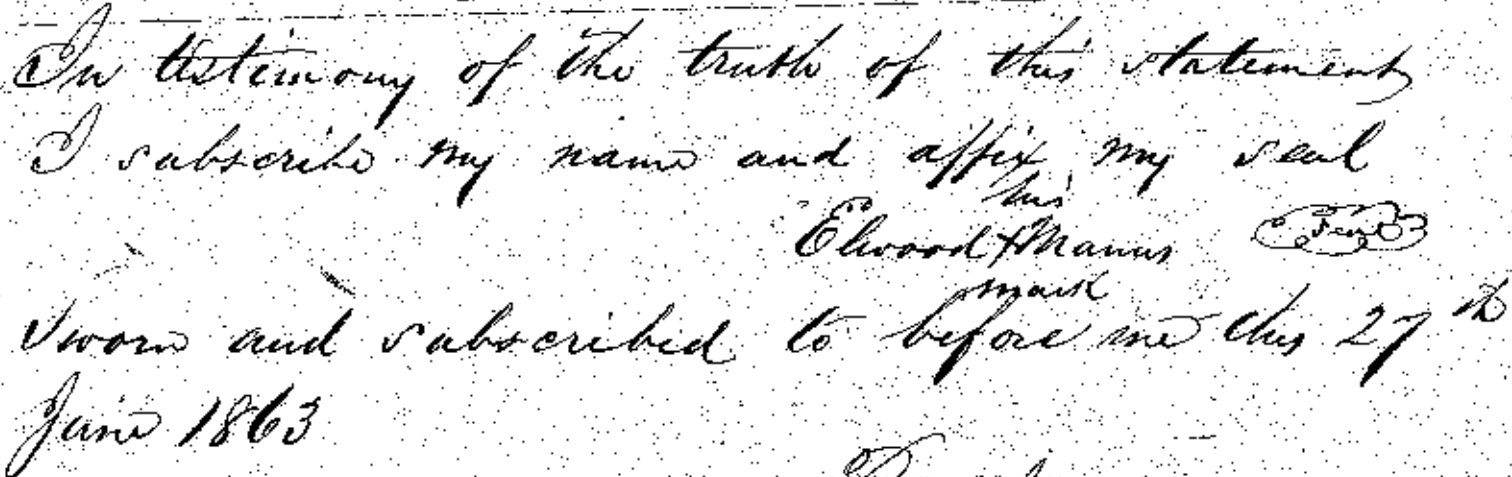 In testimony of the truth of this statement
I subscribe my name and affix my seal
his
Elwood X Manus
mark
Sworn and subscribed to before me this 27th
June 1863